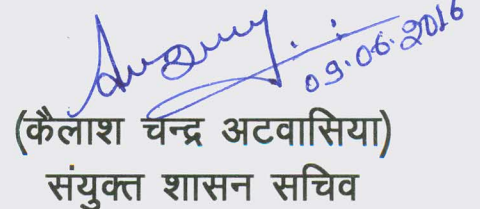 09.06.2016
(कैलाश चन्द्र अटवासिया)
संयुक्त शासन सचिव